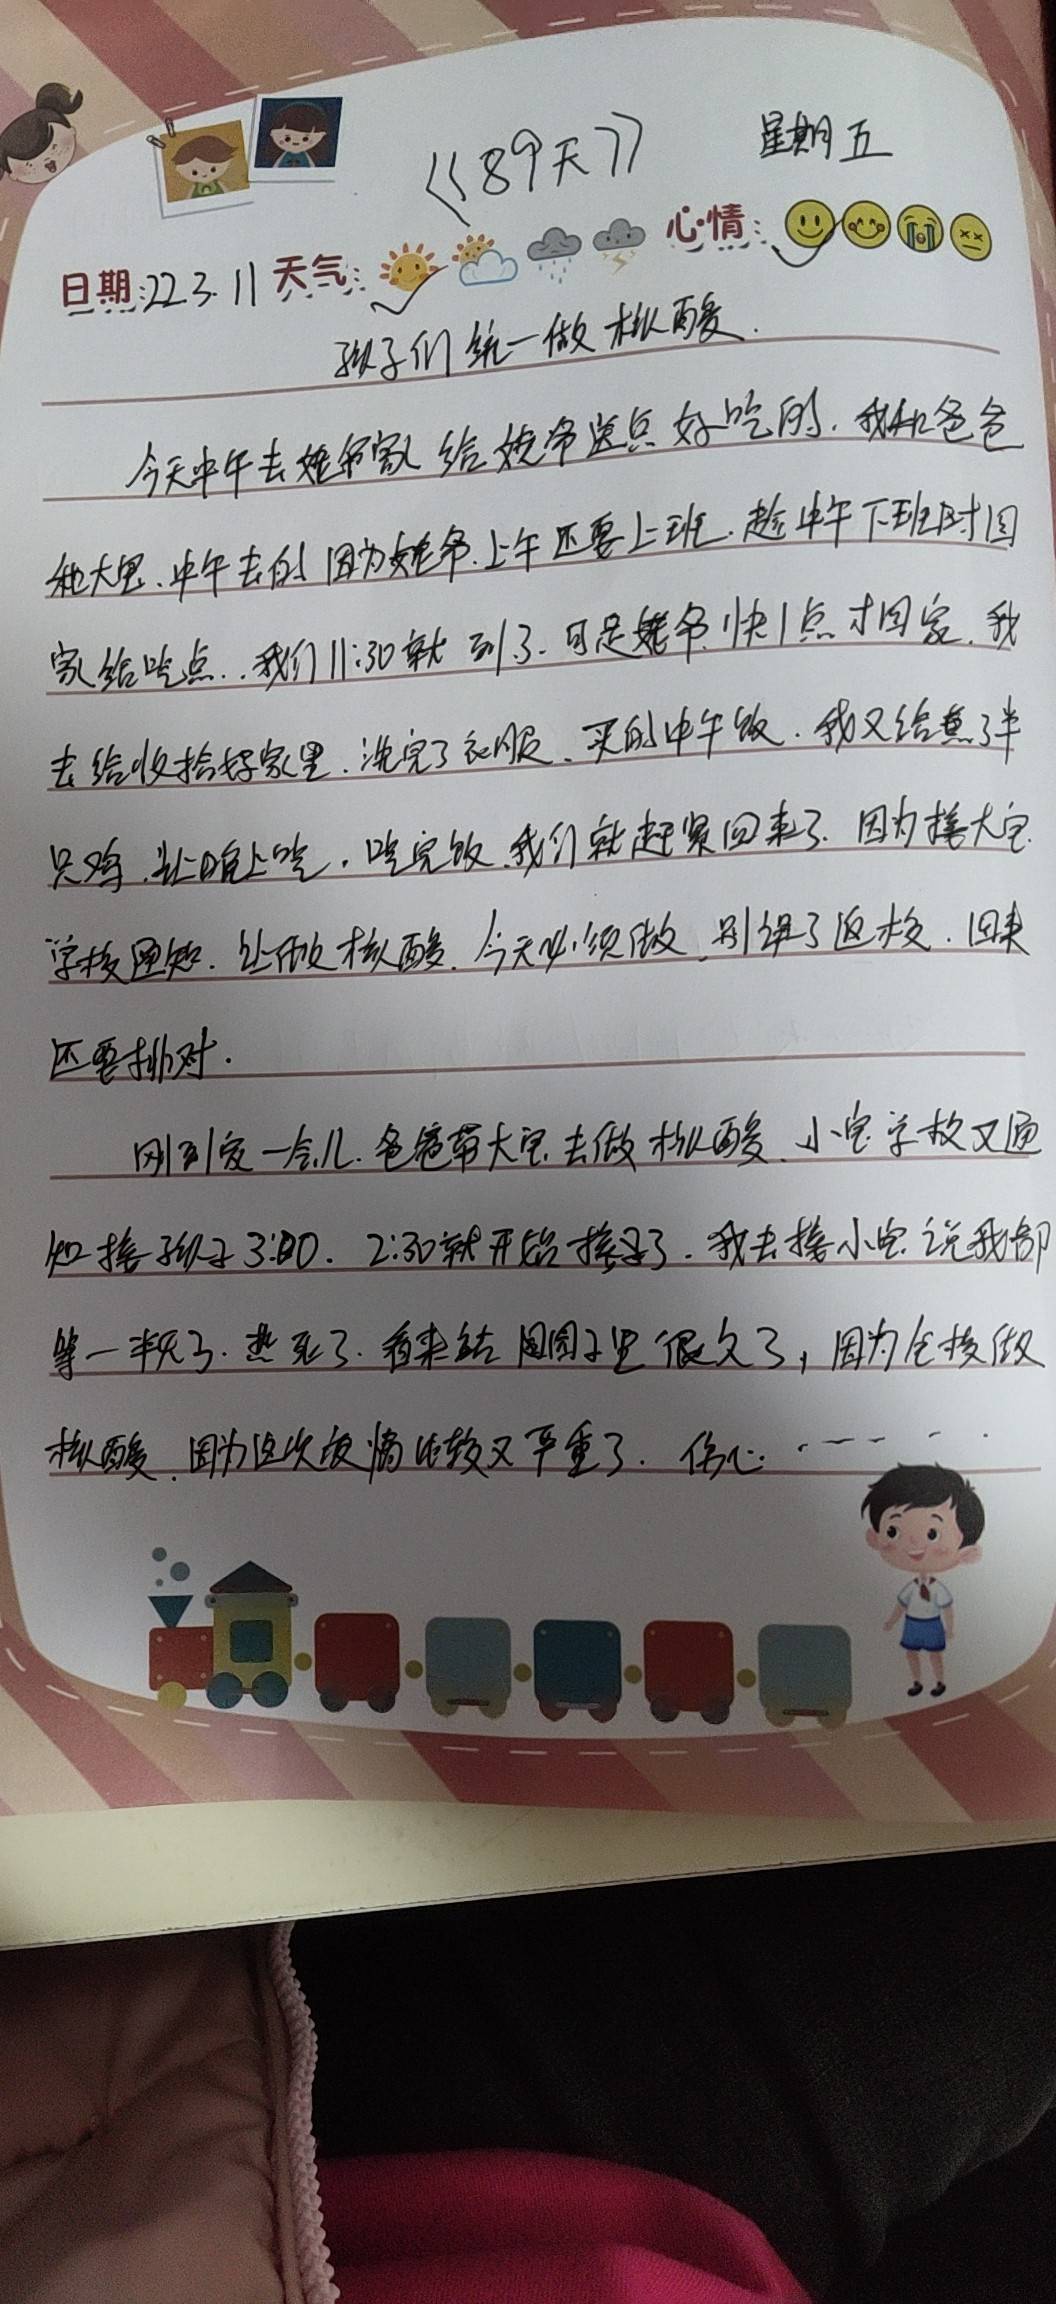 《89天》 星期五
日期:22.3.11 天气: 心情:
孩子们统一做核酸.
今天中午去姥爷家给姥爷送点好吃的.我和爸爸
和大宝.中午去的因为姥爷.上午还要上班.趁中午下班时回
家给吃点..我们11:30就到了.可是姥爷.快1点才回家.我
去给收拾好家里.洗完了衣服、买的中午饭.我又给煮了半
只鸡.让晚上吃.吃完饭.我们就赶紧回来了.因为接大宝
学校通知.让做核酸.今天必须做.别耽了返校.回来
还要排对.
刚到家一会儿.爸爸带大宝去做核酸.小宝学校又通
知接孩子3:00. 2:30就开始接了.我去接小宝说我都
等一半天了.热死了.看来站圈圈里很久了,因为全校做
核酸.因为这次疫情比较又严重了.伤心.